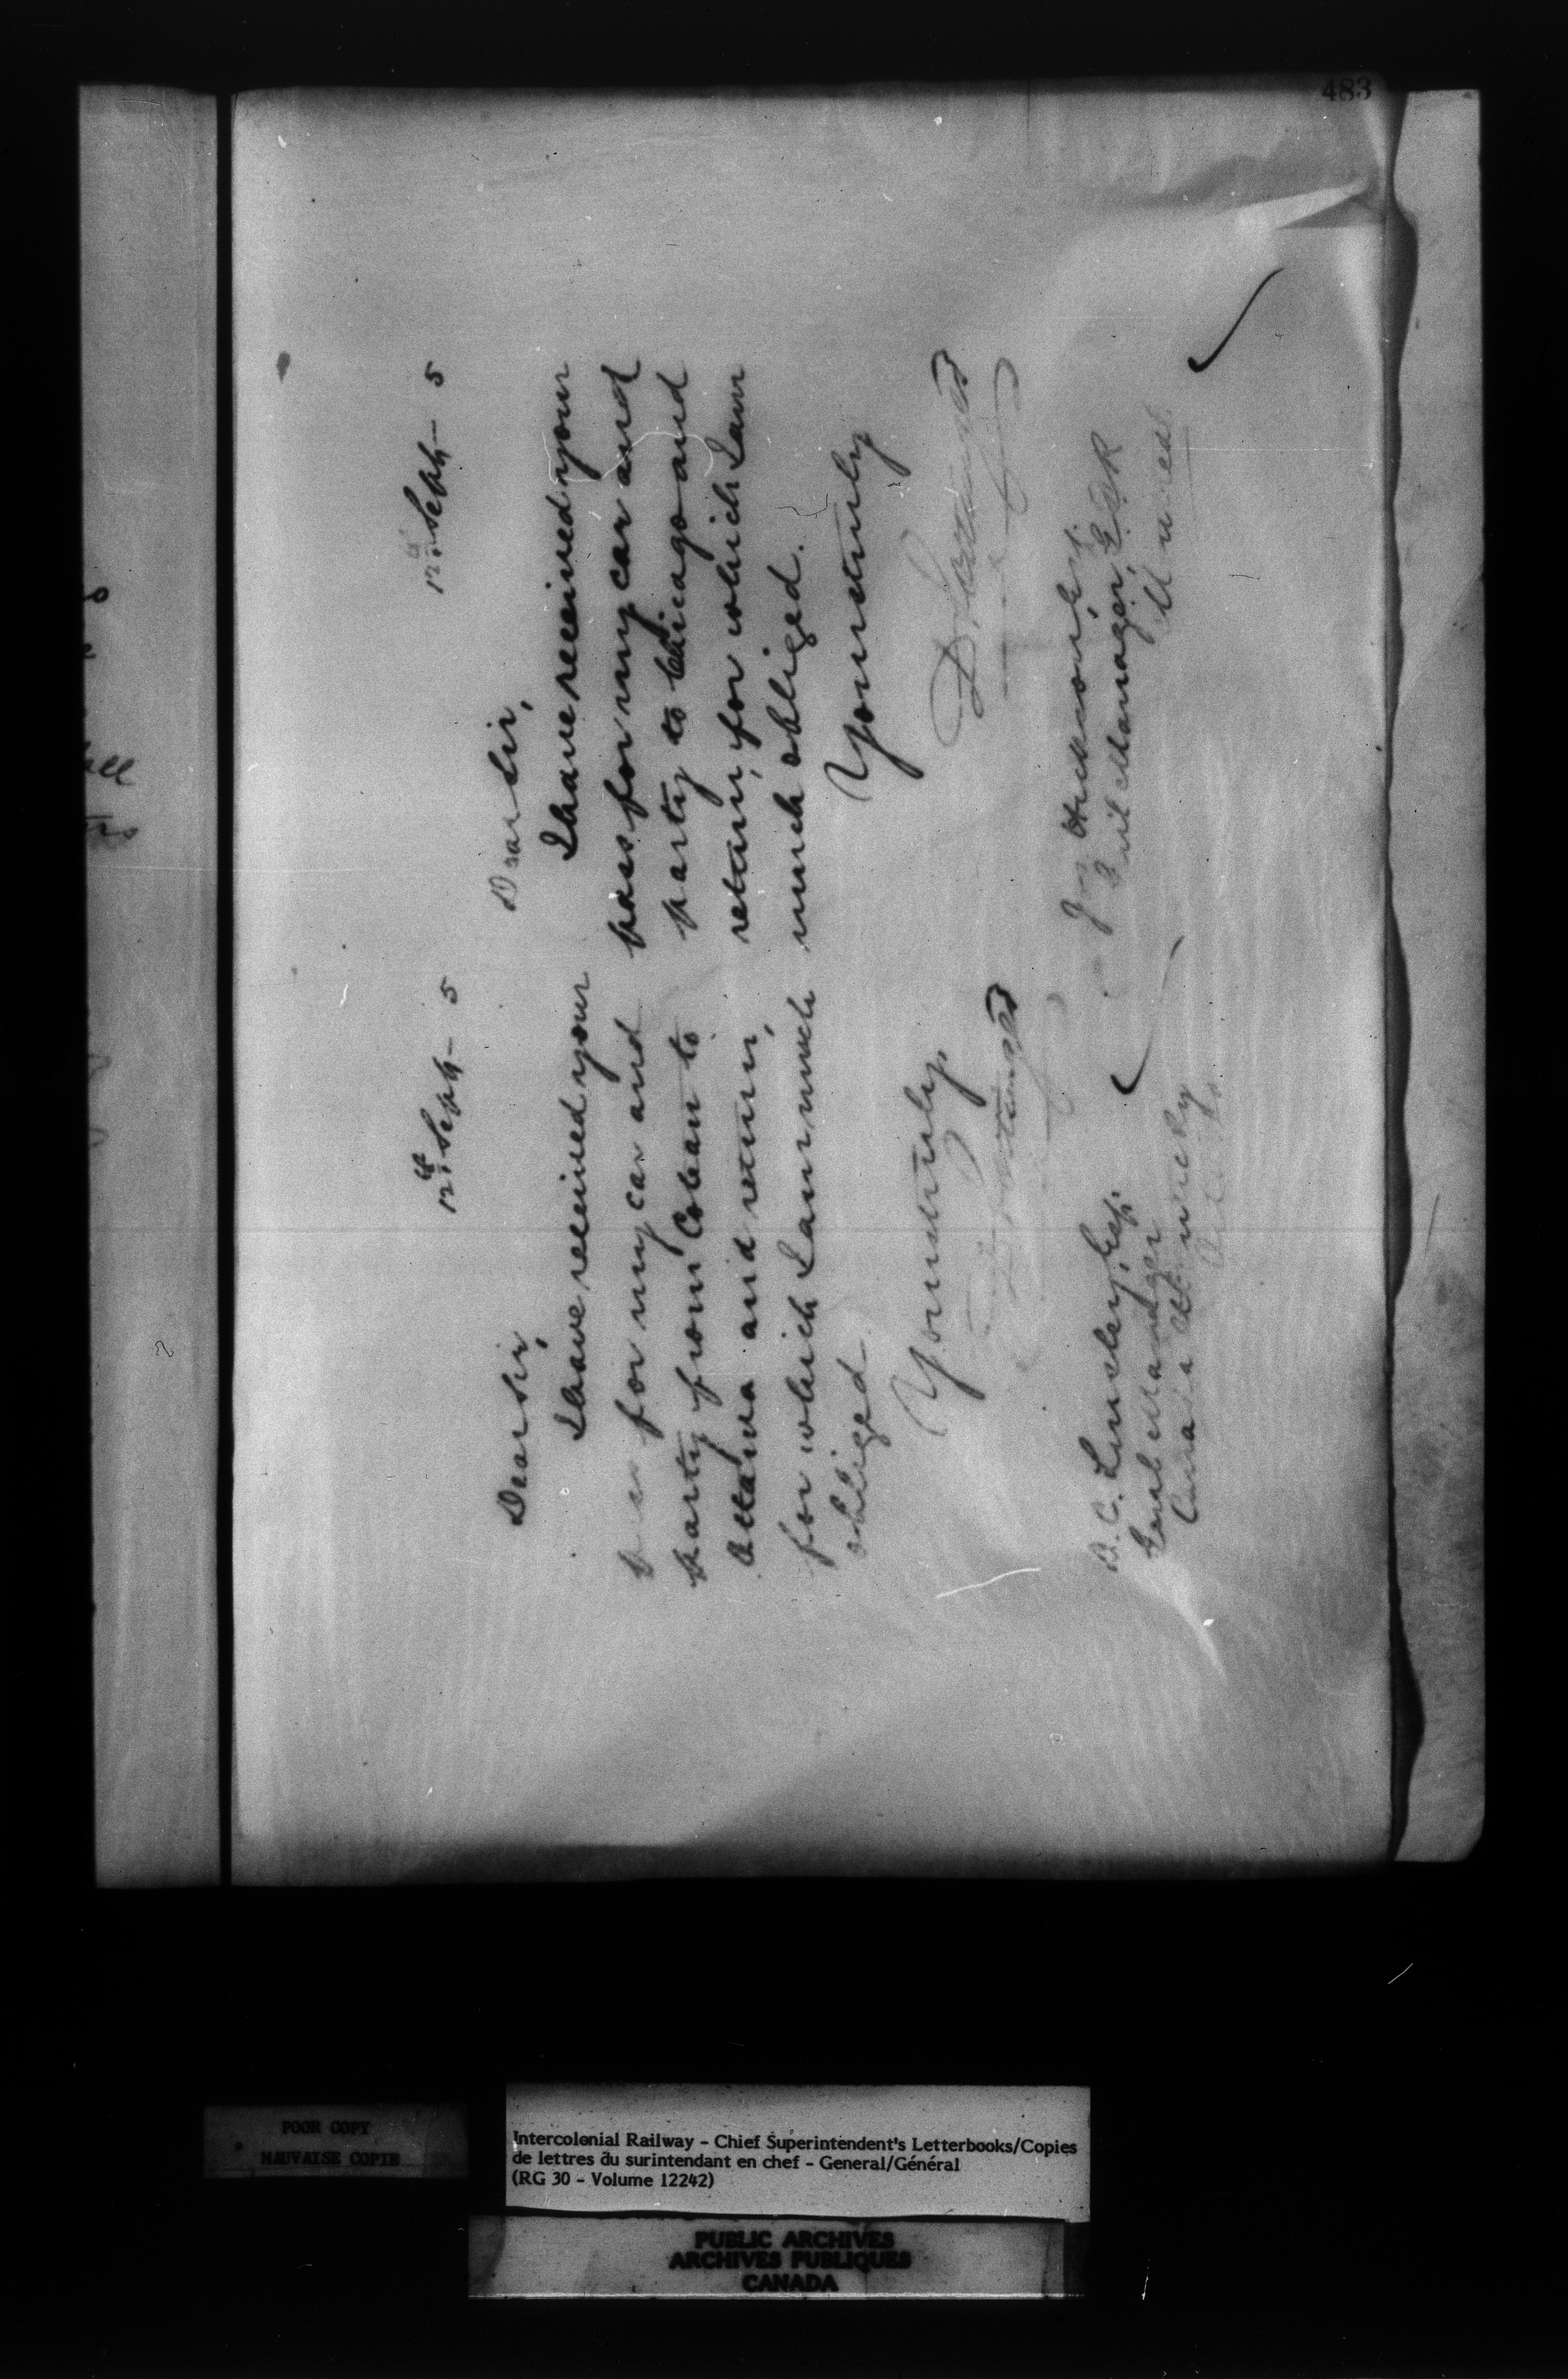 483
12th Sept— 5
Dear Sir,
I have received your
pass for my car and
party from Coteau to
Ottawa and return,
for which I am much
obliged.
Yours truly,
D Pottinger
D. C. Linsley, Esq.
Genl Manager
Canada Atlantic Ry
12th Sept— 5
Dear Sir,
I have received your
pass for my car and
party to Chicago and
return, for which I am
much obliged.
Yours truly
D Pottinger
Jos Hickson, Esq.
Genl Manager, G.T.R
Montreal
POOR COPY
MAUVAISE COPIE
Intercolonial Railway - Chief Superintendent's Letterbooks/Copies
de lettres du surintendant en chef - General/Général
(RG 30 - Volume 12242)
PUBLIC ARCHIVES
ARCHIVES PUBLIQUES
CANADA